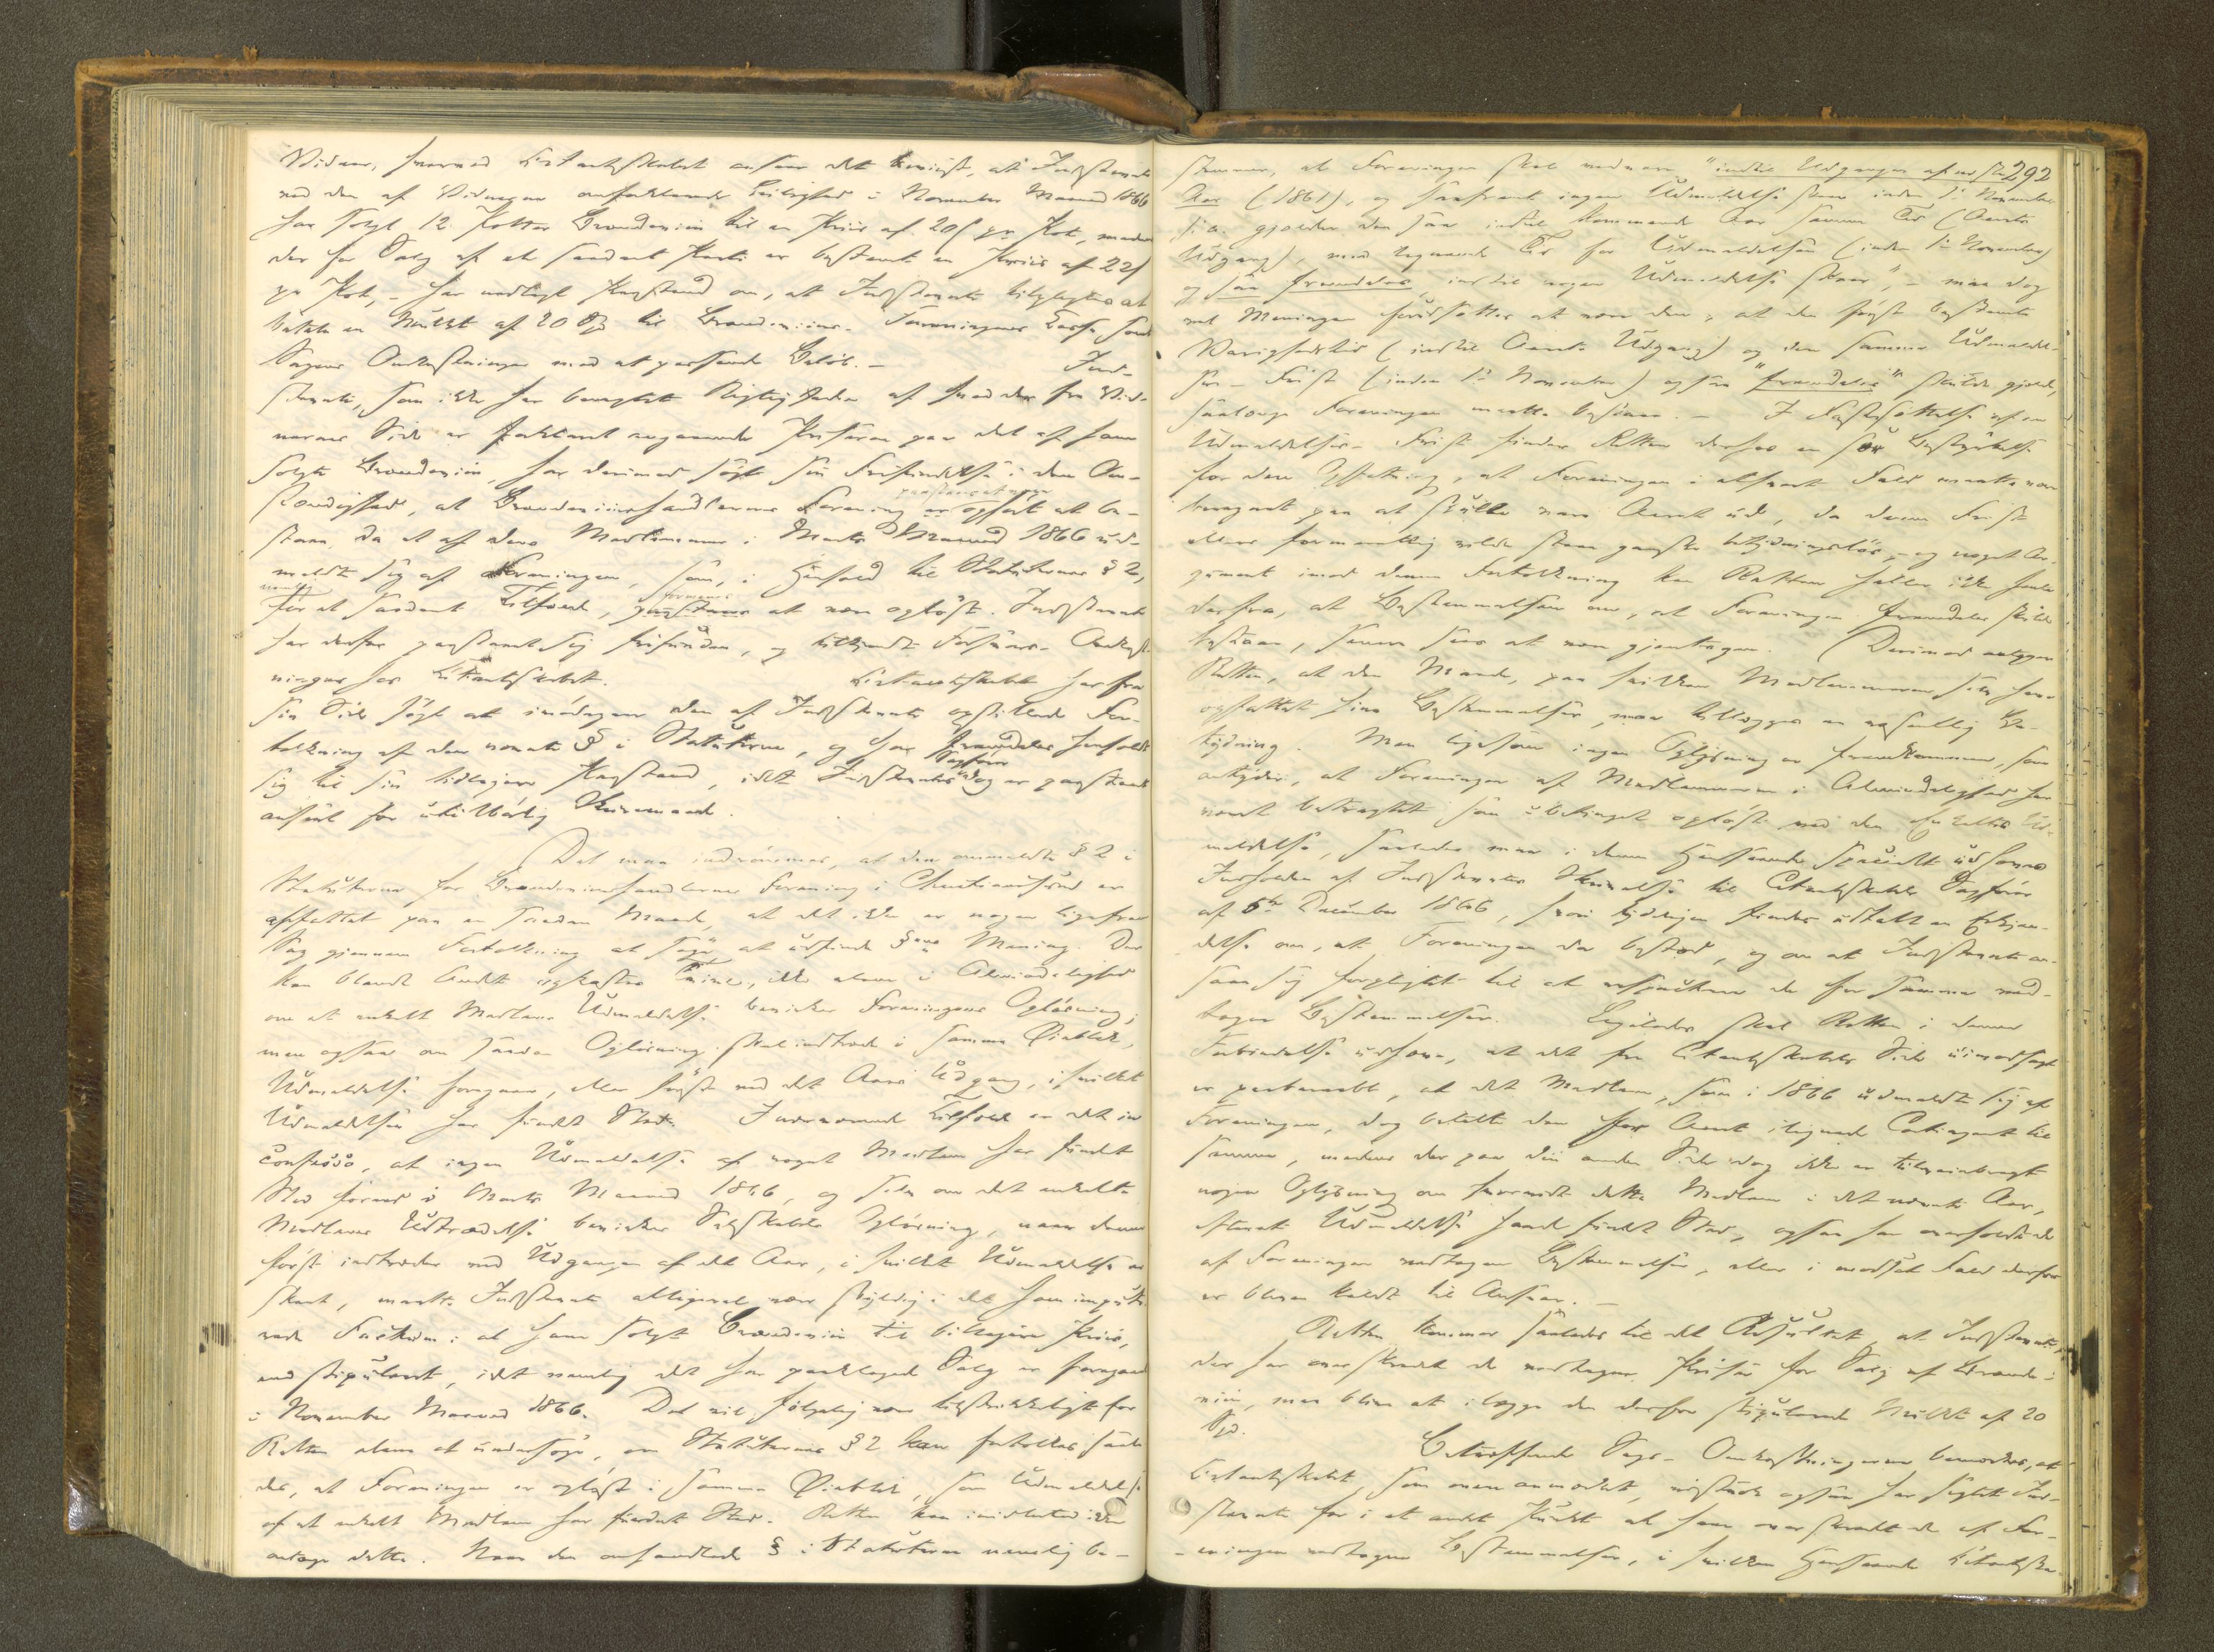 Vidner, hvorved Citantskabet anseer det beviist, at Indstevnte
ved den af Vidnerne omforklarede Leilighed i November Maaned 1866
har solgt 12 Potter Brændeviin til en Priis af 20 s pr. Pot, medens
der for Salg af et saadant Parti er bestemt en Priis af 22 s
pr Pot, – har nedlagt Paastand om, at Indstevnte tilpligtes at
betale en Mulkt af 20 Spd til Brændeviins-Foreningens Casse samt
Sagens Omkostninger med et passende Beløb. – Ind-
stevnte, som ikke har benegtet Rigtigheden af hvad der fra Vid-
nernes Side er forklaret angaaende Priserne paa det af ham
solgte Brændeviin, har derimod søgt sin Frifindelse i den Om-
stændighed, at Brændeviinshandlernes Forening paastaaes at være ophørt at be-
staae, da et af dens Medlemmer i Marts Maaned 1866 ud-
meldte sig af Foreningen, som, i Henhold til Statuternes § 2,
for et saadant Tilfælde, formenes at være opløst. Indstevnte
har derfor paastaaet sig frifunden, og tilkjendt Forsvars-Omkost-
ninger hos Citantskabet. Citantskabet har fra
sin Side søgt at imødegaae den af Indstevnte opstillede For-
tolkning af den nævnte § i Statuterne, og har fremdeles henholdt
sig til sin tidligere Paastand, idet Indstevntes Sagfører dog er paastaaet
anseet for utilbørlig Skrivemaade.
Det maa indrømmes, at den ommeldte § 2 i
Statuterne for Brændeviinshandlernes Forening i Christianssund er
affattet paa en saadan Maade, at det ikke er nogen ligefrem
Sag gjennem Fortolkning at søge at udfinde §ens Mening. Der
kan blandt Andet opkastes Tvivl, ikke alene i Almindelighed
om et enkelt Medlems Udmeldelse bevirker Foreningens Opløsning,
men ogsaa om saadan Opløsning skal indtræde i samme Øieblik,
Udmeldelse foregaaer, eller først ved det Aars Udgang, i hvilket
Udmeldelsen har fundet Sted. I nærværende Tilfælde er det in
confesso, at ingen Udmeldelse af noget Medlem har fundet
Sted førend i Marts Maaned 1866, og selv om det enkelte
Medlems Udtrædelse bevirker Selskabets Opløsning, naar denne
først indtræder ved Udgangen af det Aar, i hvilket Udmeldelsen er
skeet, maatte Indstevnte alligevel være skyldig i det ham imputerede
Factum: at have solgt Brændeviin til billigere Priis,
end stipuleret, idet nemlig det her paaklagede Salg er foregaaet
i November Maaned 1866. Det vil følgelig være tilstrækkeligt for
Retten alene at undersøge, om Statuternes § 2 kan fortolkes saale-
des, at Foreningen er opløst i samme Øieblik, som Udmeldelse
af et enkelt Medlem har fundet Sted. Retten kan imidlertid ikke
antage dette. Naar den omhandlede § i Statuterne nemlig be-
292
stemmer, at Foreningen skal vedvare "indtil Udgangen af næste
Aar (1861), og saafremt ingen Udmeldelse skeer inden 1ste November
s. A. gjelder den saa indtil kommende Aar samme Tid (Aarets
Udgang), med lignende Tid for Udmeldelsen (inden 1ste November)
og saa fremdeles, indtil nogen Udmeldelse skeer", – maa dog
vel Meningen forudsættes at være den, at den først bestemte
Varighedstid (indtil Aarets Udgang) og den samme Udmeldel-
ses-Frist (inden 1ste November) ogsaa "fremdeles" skulde gjelde,
saalænge Foreningen maatte bestaae. – I Fastsættelsen af en
Udmeldelses-Frist finder Retten derhos en stor Bestyrkelse
for den Opfatning, at Foreningen i ethvert Fald maatte være
beregnet paa at skulle vare Aaret ud, da denne Frist
ellers formeentlig vilde staae ganske betydningsløs, – og noget Ar-
gument imod denne Fortolkning kan Retten heller ikke hente
derfra, at Bestemmelsen om, at Foreningen fremdeles skulde
bestaae, sees at være gjentagen. Derimod antager
Retten, at den Maade, paa hvilken Medlemmerne selv have
opfattet sine Bestemmelser, maa tillægges en væsentlig Be-
tydning. Men ligesom ingen Oplysning er fremkommen, som
antyder, at Foreningen af Medlemmerne i Almindelighed har
været betragtet som ubetinget opløst ved den enkeltes Ud-
meldelse, saaledes maa i denne Henseende specielt udhæves
Indholdet af Indstevntes Skrivelse til Citantskabets Sagfører
af 6te December 1866, hvori tydeligen findes udtalt en Erkjen-
delse om, at Foreningen da bestod, og om at Indstevnte an-
saae sig forpligtet til at respectere de for samme ved-
tagne Bestemmelser. Ligeledes skal Retten i denne
Forbindelse udhæve, at det fra Citantskabets Side uimodsagt
er paaberaabt, at det Medlem, som i 1866 udmeldte sig af
Foreningen, dog betalte den for Aaret ilignede Contingent til
samme, medens der paa den anden Side dog ikke er tilveiebragt
nogen Oplysning om hvorvidt dette Medlem i det nævnte Aar,
efterat Udmeldelse havde fundet Sted, ogsaa har overholdt de
af Foreningen vedtagne Bestemmelser, eller i modsat Fald derfor
er bleven kaldt til Ansvar. –
Retten kommer saaledes til det Resultat, at Indstevnte,
der har overskredet de vedtagne Priser for Salg af Brænde-
viin, maa blive at ilægge den derfor stipulerede Mulkt af 20
Spd.
Betræffende Sags-Omkostningerne bemærkes, at
Citantskabet, som ovenanmærket, ogsaa har sigtet Ind-
stevnte for i et andet Punkt at have overskredet de af For-
eningen vedtagne Bestemmelser, i hvilken Henseende Citantska-